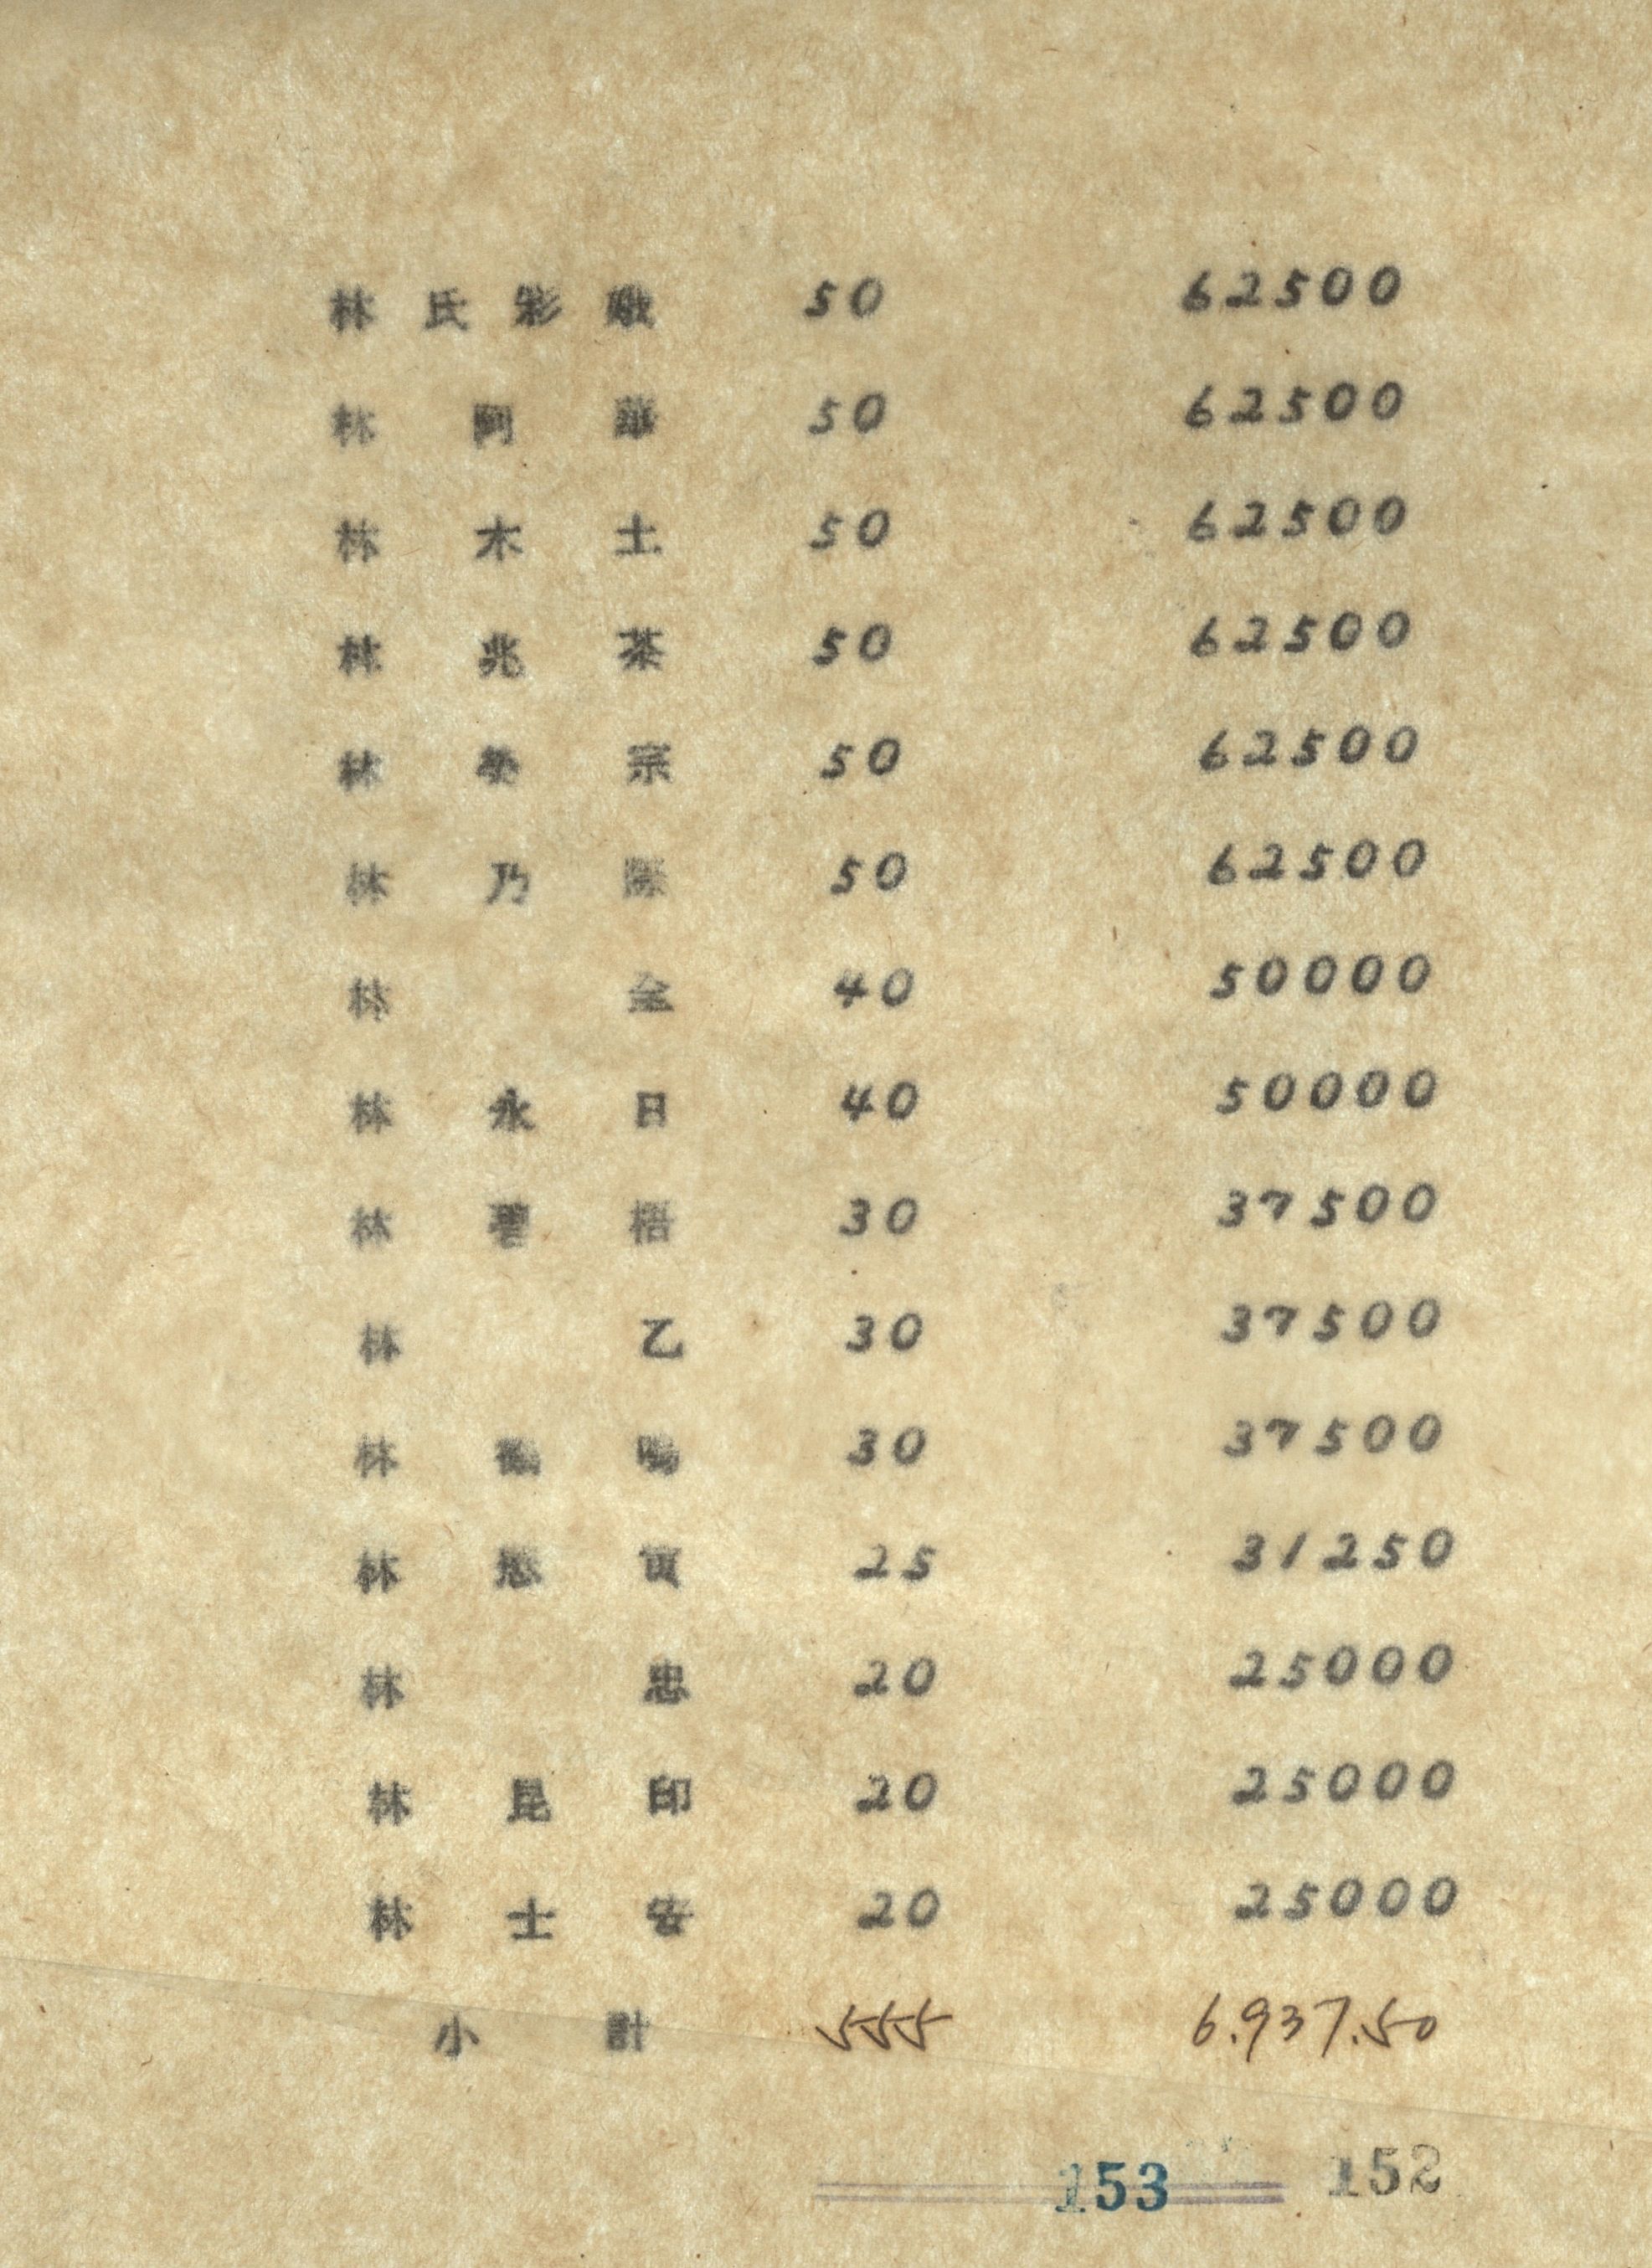 林氏彩 50 62500
林阿 50 62500
林木土 50 62500
林兆茶 50 62500
林 宗 50 62500
林乃 50 62500
林 金 40 50000
林永日 40 50000
林碧梧 30 37500
林 乙 30 37500
林 30 37500
林 25 31250
林 忠 20 25000
林昆印 20 25000
林士安 20 25000
小計 555 6.937.50
153 152